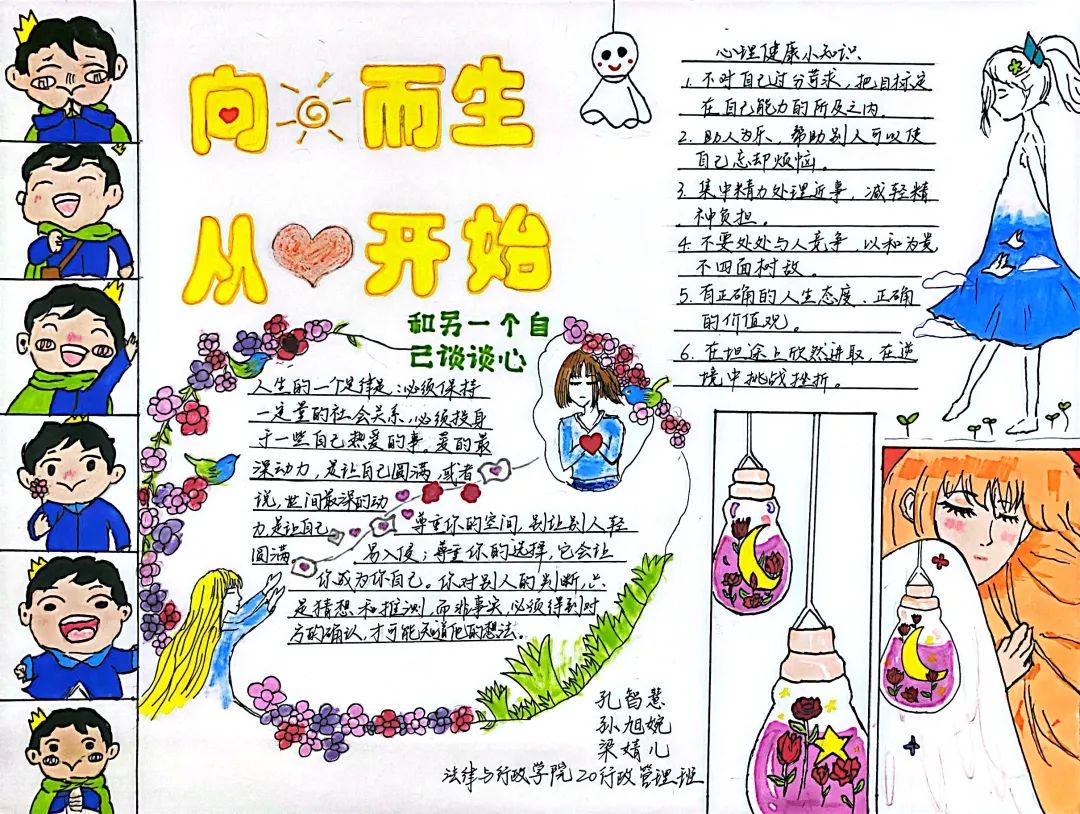 向而生
从开始
和另一个自
己谈谈心
人生的一个定律是：必须保持
一定量的社会关系，必须投身
于一些自己热爱的事。爱的最
深动力，是让自己圆满，或者
说，世间最深的动
力是让自己
圆满
尊重你的空间，别让别人轻
易入侵；尊重你的选择，它会让
你成为你自己。你对别人的判断，只
是猜想和推测，而非事实，必须得到对
方的确认，才可能知道他的想法。
心理健康小知识
1. 不对自己过分苛求，把目标定
在自己能力的所及之内。
2. 助人为乐，帮助别人可以使
自己忘却烦恼。
3. 集中精力处理近事，减轻精
神负担。
4. 不要处处与人竞争，以和为贵
不四面树敌。
5. 有正确的人生态度、正确
的价值观。
6. 在坦途上欣然进取，在逆
境中挑战挫折。
孔智慧
孙旭婉
梁婧儿
法律与行政学院20行政管理班